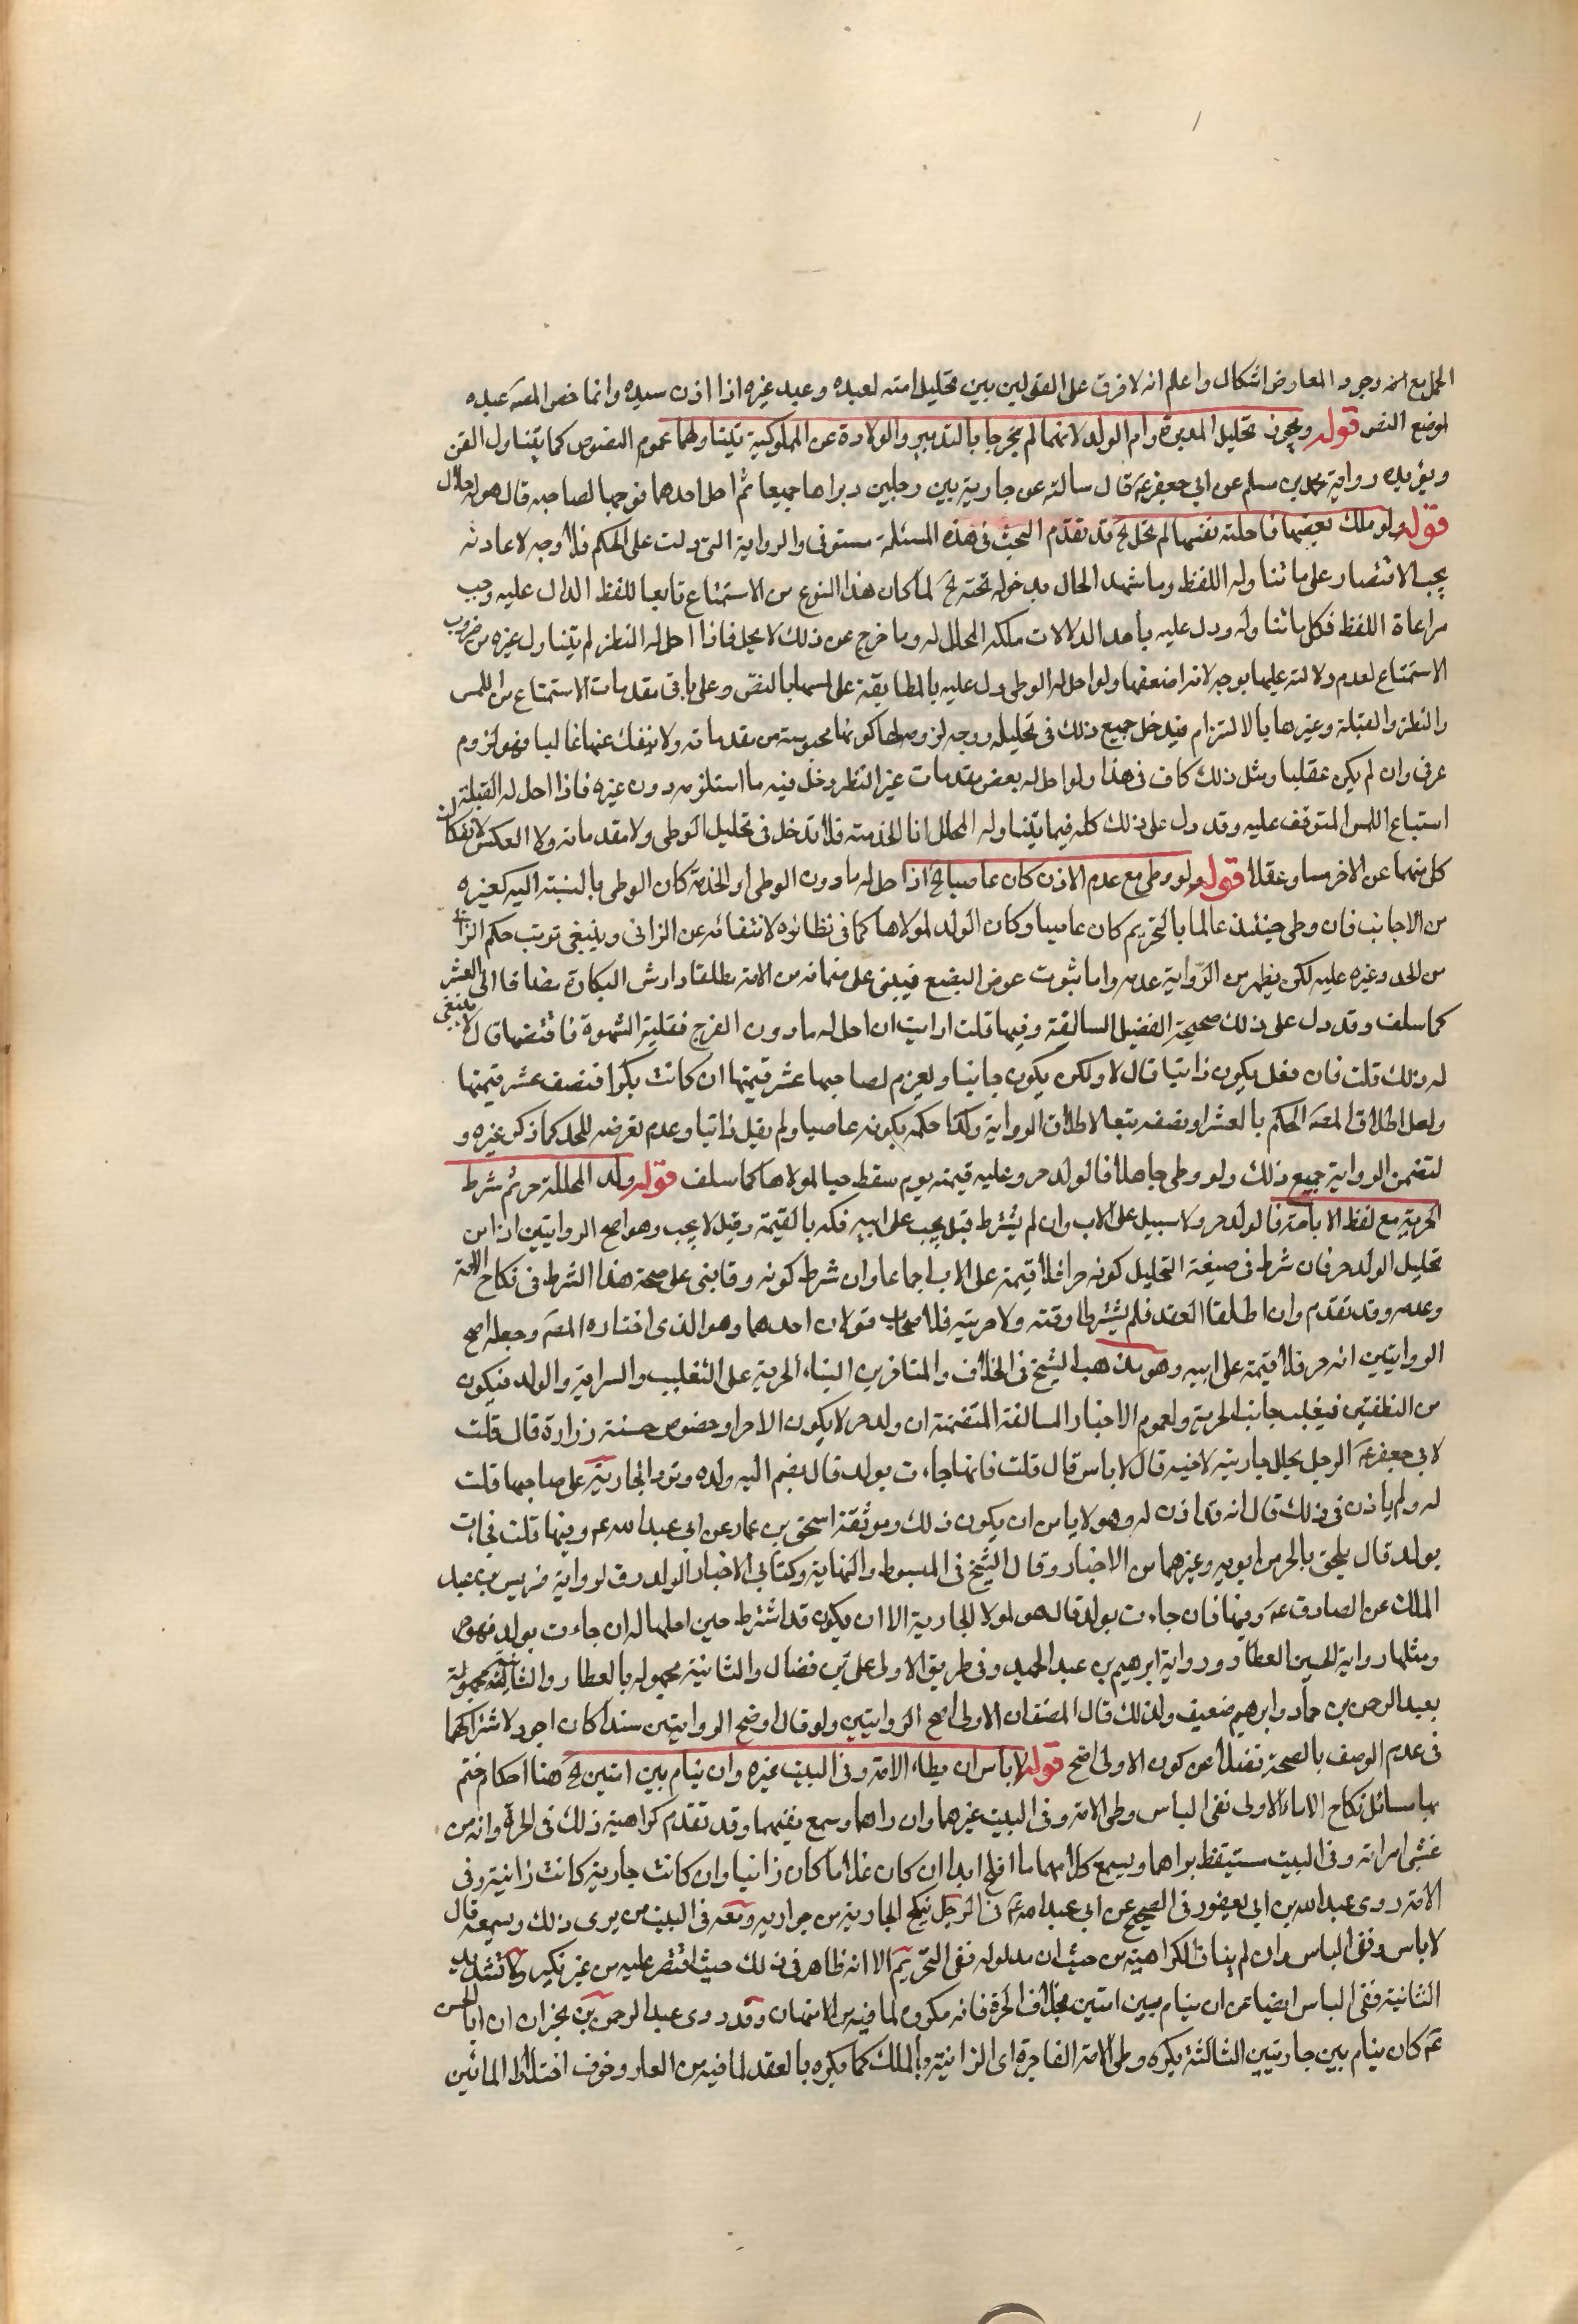 الحمل مع انه وجود المعارض اشكال واعلم انه لا فرق على القولين بين تحليل امته لعبده وعبد غيره اذا اذن سيده وانما خص المصَ عبده
لموضع النص قوله ويجوز تحليل المدبرة وام الولد لانهما لم يخرجا بالتدبير والولادة عن المملوكية فيتناولهما عموم النصوص كما يتناول القن
ويؤيده رواية محمد بن مسلم عن ابي جعفر عَ قال سالته عن جارية بين رجلين دبراها جميعا ثم احل احدهما فرجها لصاحبه قال هو له حلال
قوله ولو ملك بعضها فاحلته نفسها لم تحل الخ قد تقدم البحث في هذه المسئلة مستوفى والرواية التي دلت على الحكم فلا وجه لاعادته
يجب الاقتصار على ما تناوله اللفظ وما شهد الحال بدخوله تحته الخ لما كان هذا النوع من الاستمتاع تابعا للفظ الدال عليه وجب
مراعاة اللفظ فكل ما تناوله ودل عليه باحد الدلالات ملكه المحلل له وما خرج عن ذلك لا يحل فاذا احل له النظر لم يتناول غيره من ضروب
الاستمتاع لعدم دلالته عليها بوجه لانه اضعفها ولو احل له الوطى دل عليه بالمطابقة على لمسها بالنص وعلى باقي مقدمات الاستمتاع من اللمس
والنظر والقبلة وغيرها بالالتزام فيدخل جميع ذلك في تحليله ووجه لزومها كونها محبوبة من مقدماته ولا ينفك عنها غالبا فهو لزوم
عرفي وان لم يكن عقليا ومثل ذلك كاف في هذا ولو احل له بعض مقدمات غير النظر دخل فيه ما استلزمه دون غيره فاذا احل له القبلة
استباع اللمس المتوقف عليه وقد دل على ذلك كله فيما يتناوله المحلل اما الخدمة فلا تدخل في تحليل الوطى ولا مقدماته ولا العكس لانفكاك
كل منهما عن الاخر حسا وعقلا قوله ولو وطى مع عدم الاذن كان عاصيا الخ اذا احل له ما دون الوطى او الخدمة كان الوطى بالنسبة اليه كغيره
من الاجانب فان وطى حينئذ عالما بالتحريم كان عاصيا وكان الولد لمولاها كما في نظائره لانتفائه عن الزاني وينبغي ترتب حكم الزنا
من الحد وغيره عليه لكن يظهر من الرواية عدمه واما ثبوت عوض البضع فيبنى على ضمانه من الامة مطلقا وارش البكارة مضافا الى العشر
كما سلف وقد دل على ذلك صحيحة الفضيل السالفة وفيها قلت ارايت ان احل له ما دون الفرج فغلبته الشهوة فاقتضها قال لا ينبغي
له ذلك قلت فان فعل يكون زانيا قال لا ولكن يكون خائنا ويغرم لصاحبها عشر قيمتها ان كانت بكرا فنصف عشر قيمتها
ولعل اطلاق المصَ الحكم بالعشر او نصفه تبعا لاطلاق الرواية وكذا حكمه بكونه عاصيا ولم يقل زانيا وعدم تعرضه للحد كما ذكره غيره و
لتضمن الرواية جميع ذلك ولو وطى جاهلا فالولد حر وعليه قيمته يوم سقط حيا لمولاها كما سلف قوله ولد المحللة حر ثم شرط
الحرية مع لفظ الاباحة فالولد حر ولا سبيل على الاب وان لم يشترط قيل يجب على ابيه فكه بالقيمة وقيل لا يجب وهو اصح الروايتين اذا من
تحليل الولد حر فان شرط في صيغة التحليل كونه حرا فلا قيمة على الاب اجماعا وان شرط كونه رقا بنى على صحة هذا الشرط في نكاح الامة
وعدمه وقد تقدم وان اطلقا العقد فلم يشترطا رقته ولا حريته فللاصحاب قولان احدهما وهو الذي اختاره المصَ وجعله اصح
الروايتين انه حر فلا قيمة على ابيه وهو مذهب الشيخ في الخلاف والمتاخرين البناء الحرية على التغليب والسراية والولد فيكون
من النطفتين فيغلب جانب الحرية ولعموم الاخبار السالفة المتضمنة ان ولد حر لا يكون الا حرا وخصوص حسنة زرارة قال قلت
لابي جعفر عَ الرجل يحلل جاريته لاخيه قال لا باس قال قلت فانها جاءت بولد قال يضم اليه ولده وترد الجارية على صاحبها قلت
له ولم ياذن في ذلك قال انه قد اذن له وهو لا يامن ان يكون ذلك وموثقة اسحق بن عمار عن ابي عبد الله عم وفيها قلت فجاءت
بولد قال يلحق بالحر من ابويه وغيرهما من الاخبار وقال الشيخ في المبسوط والنهاية وكتابي الاخبار الولد رق لرواية ضريس بن عبد
الملك عن الصادق عَ وفيها فان جاءت بولد قال هو لمولا الجارية الا ان يكون قد اشترط حين احلها له ان جاءت بولد فهو حر
ومثلها رواية الحسين العطار ورواية ابرهيم بن عبد الحميد وفي طريق الاولى علي بن فضال والثانية مجهوله بالعطار والثالثة مجهولة
بعبد الرحمن بن حماد وابرهيم ضعيف ولذلك قال المصنف ان الاولى اصح الروايتين ولو قال اوضح الروايتين سندا كان اجود لاشتراكهما
في عدم الوصف بالصحة فضلا عن كون الاولى اصح قوله لا باس ان يطاء الامة وفي البيت غيره وان ينام بين امتين الخ هنا احكام ختم
بها مسائل نكاح الاماء الاولى نفى الباس وطى الامة وفي البيت غيرهما وان راهما وسمع نفسهما وقد تقدم كراهية ذلك في الحرة وانه من
غشى امراته وفي البيت مستيقظ يراهما ويسمع كلامهما ما افلح ابدا ان كان غلاما كان زانيا وان كانت جارية كانت زانية وفي
الامة روى عبد الله بن ابي يعفور في الصحيح عن ابي عبد الله عَ في الرجل ينكح الجارية من جواريه ومعه في البيت من يرى ذلك ويسمعه قال
لا باس ونفى الباس وان لم يناف الكراهية من حيث ان مدلوله نفى التحريم الا انه ظاهر في ذلك حيث اقتصر عليه من غير نكير وكما تشديد
الثانية نفى الباس ايضا عن ان ينام بين امتين بخلاف الحرة فانه مكروه لما فيه من الامتهان وقد روى عبد الرحمن بن نجران ان ابا الحسن
عَم كان ينام بين جاريتين الثالثة يكره وطى الامة الفاجرة اي الزانية بالملك كما يكره بالعقد لما فيه من العار وخوف اختلاط المائين